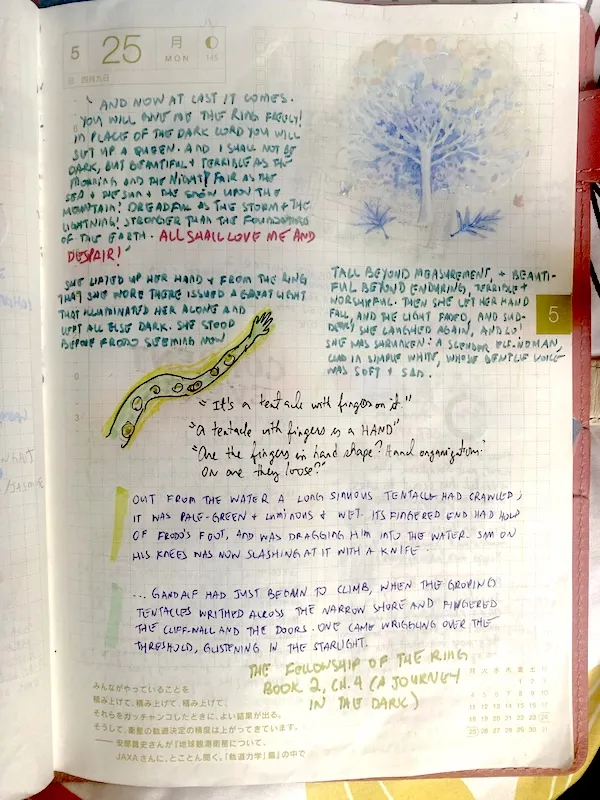 5 25 月 MON 145
日 四月九日
" AND NOW AT LAST IT COMES.
YOU WILL GIVE ME THE RING FREELY!
IN PLACE OF THE DARK LORD YOU WILL
SET UP A QUEEN. AND I SHALL NOT BE
DARK, BUT BEAUTIFUL + TERRIBLE AS THE
MORNING AND THE NIGHT! FAIR AS THE
SEA + THE SUN + THE SNOW UPON THE
MOUNTAIN! DREADFUL AS THE STORM + THE
LIGHTNING! STRONGER THAN THE FOUNDATIONS
OF THE EARTH. ALL SHALL LOVE ME AND
DESPAIR!"
SHE LIFTED UP HER HAND + FROM THE RING
THAT SHE WORE THERE ISSUED A GREAT LIGHT
THAT ILLUMINATED HER ALONE AND
LEFT ALL ELSE DARK. SHE STOOD
BEFORE FRODO SEEMING NOW
TALL BEYOND MEASUREMENT, + BEAUTI-
FUL BEYOND ENDURING, TERRIBLE +
WORSHIPFUL. THEN SHE LET HER HAND
FALL, AND THE LIGHT FADED, AND SUD-
DENLY SHE LAUGHED AGAIN, AND LO!
SHE WAS SHRUNKEN: A SLENDER ELF-WOMAN,
CLAD IN SIMPLE WHITE, WHOSE GENTLE VOICE
WAS SOFT + SAD.
5
0
3
"It's a tentacle with fingers on it."
"A tentacle with fingers is a HAND"
"Are the fingers in hand shape? Hand organization?
Or are they loose?"
OUT FROM THE WATER A LONG SINUOUS TENTACLE HAD CRAWLED;
IT WAS PALE-GREEN + LUMINOUS + WET. ITS FINGERED END HAD HOLD
OF FRODO'S FOOT, AND WAS DRAGGING HIM INTO THE WATER. SAM ON
HIS KNEES WAS NOW SLASHING AT IT WITH A KNIFE.
... GANDALF HAD JUST BEGUN TO CLIMB, WHEN THE GROPING
TENTACLES WRITHED ACROSS THE NARROW SHORE AND FINGERED
THE CLIFF-WALL AND THE DOORS. ONE CAME WRIGGLING OVER THE
THRESHOLD, GLISTENING IN THE STARLIGHT.
THE FELLOWSHIP OF THE RING
BOOK 2, CH. 4 (A JOURNEY
IN THE DARK)
みんながやっていることを
積み上げて、積み上げて、積み上げて、
それらをガッチャンコしたときに、よい結果が出る。
そうして、衛星の軌道決定の精度は上がってきています。
JAXAさんに、とことん聞く。「軌道力学」篇』の中で
月 火 水 木 金 土 日
1 2 3
4 5 6 7 8 9 10
11 12 13 14 15 16 17
18 19 20 21 22 23 24
25 26 27 28 29 30 31